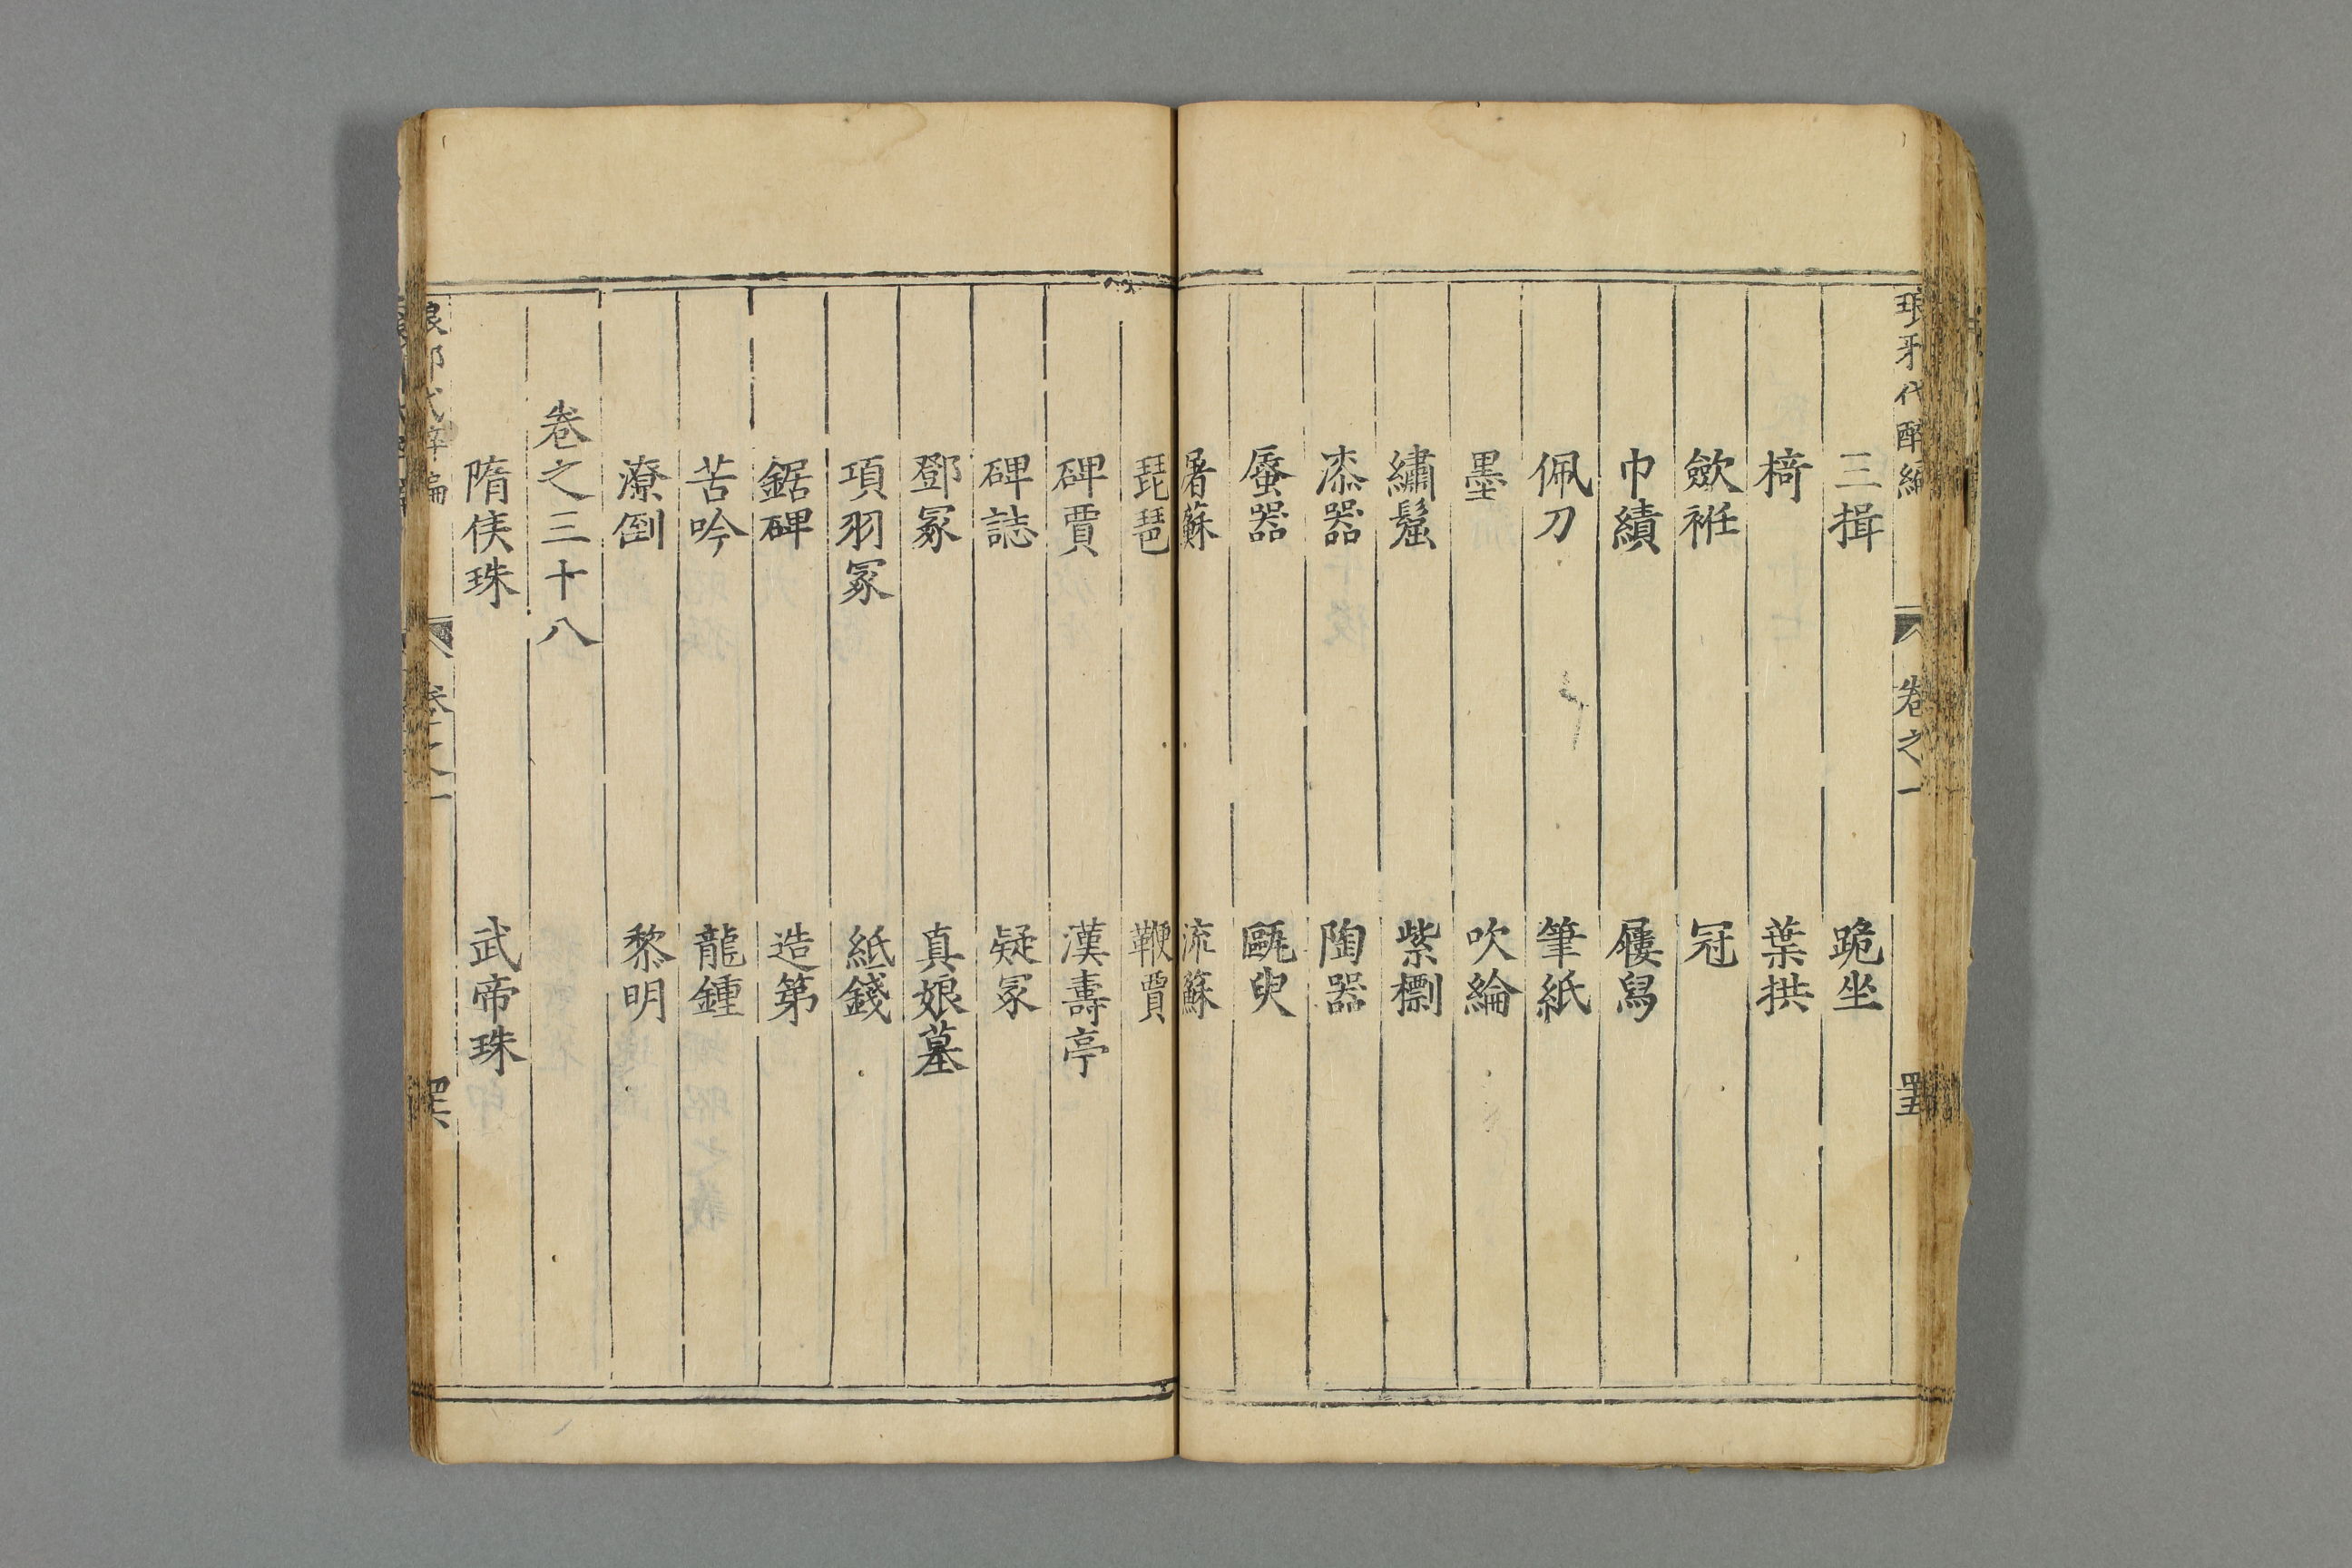 琅牙代醉編 卷之一
三揖 跪坐
椅 葉拱
歛袵 冠
巾績 屨舄
佩刀 筆紙
墨 吹綸
繡鬘 紫㯹
漆器 陶器
蜃器 甌臾
屠蘇 流蘇
琵琶 鞭賈
碑賈 漢壽亭
碑誌 疑冢
鄧冢 真娘墓
項羽冢 紙錢
鋸碑 造第
苦吟 龍鍾
潦倒 黎明
卷之三十八
隋侯珠 武帝珠